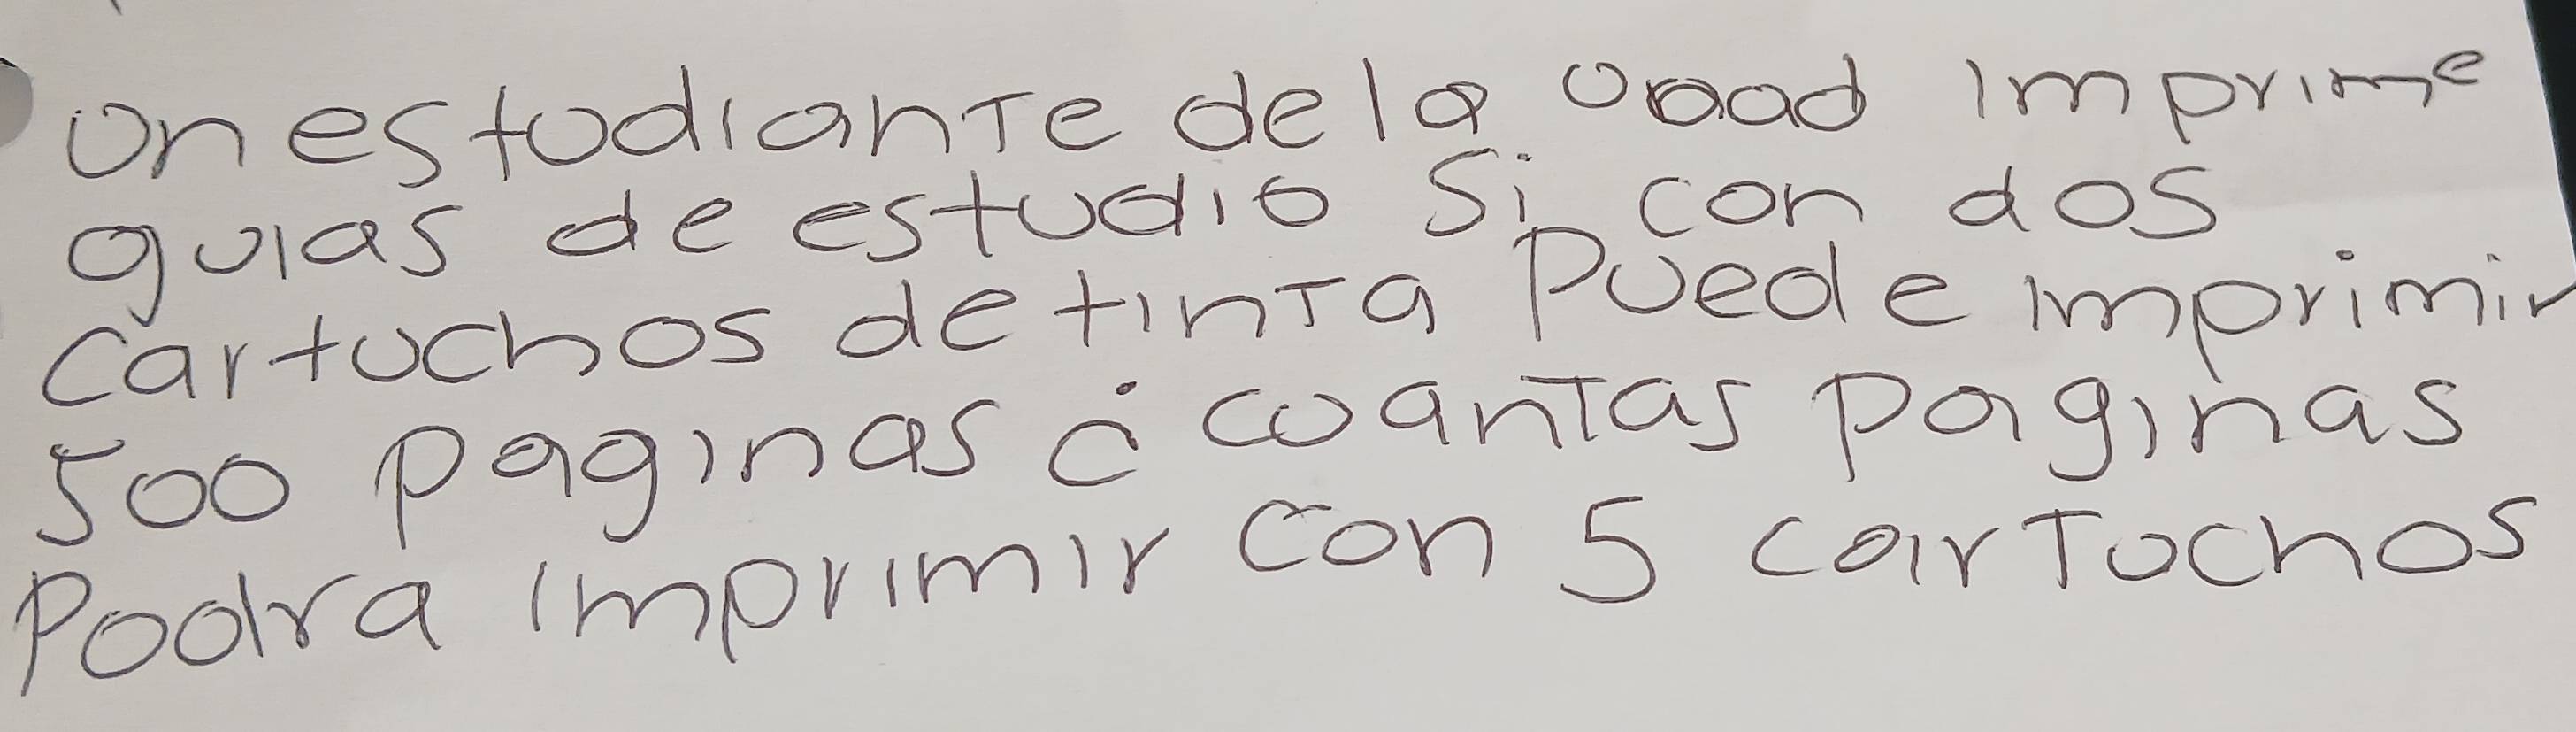 un estudiante de la unad imprime
guias de estudio Si con dos
cartuchos de tinta Puede imprimir
500 paginas ¿ cuantas paginas
Podra imprimir con 5 cartuchos